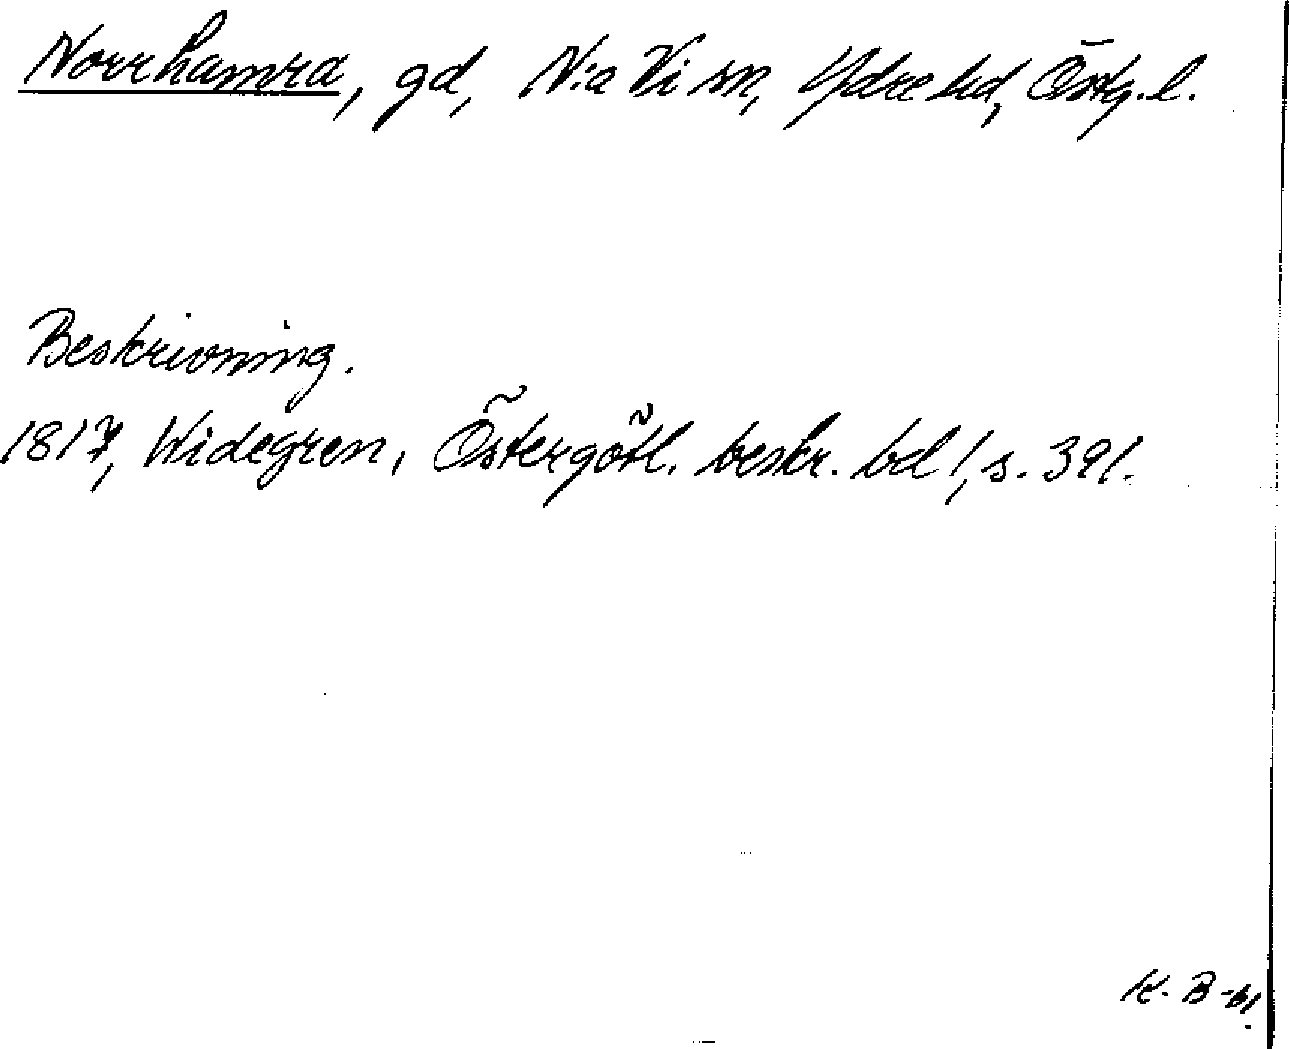 Norrhamra, gd, N:a Vi sn, Ydre hd, Östg. l.
Beskrivning.
1817, Widegren, Östergötl. beskr. bd 1, s. 391.
K. B-bl